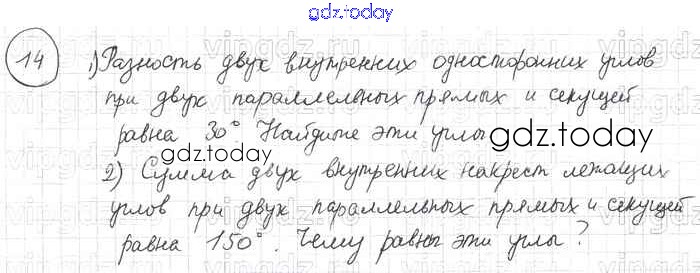 gdz.today
14 1) Разность двух внутренних односторонних углов
при двух параллельных прямых и секущей
равна 30° Найдите эти углы
gdz.today
gdz.today
2) Сумма двух внутренних накрест лежащих
углов при двух параллельных прямых и секущей
равна 150°. Чему равны эти углы?